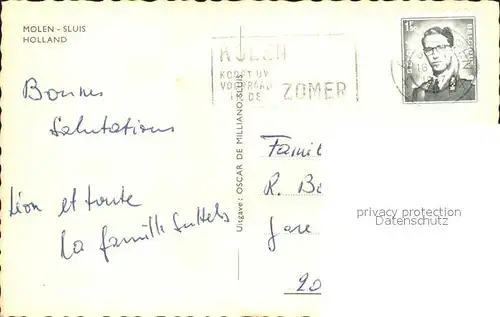 MOLEN - SLUIS
HOLLAND
KOLEN
KOOPT UW
VOORRAAD
IN DE ZOMER
1F
Bonnes
Salutations
Léon et toute
la famille
Uitgave: OSCAR DE MILLIANO-SLUIS
Famil
R. Be
Gare
20
privacy protection
Datenschutz